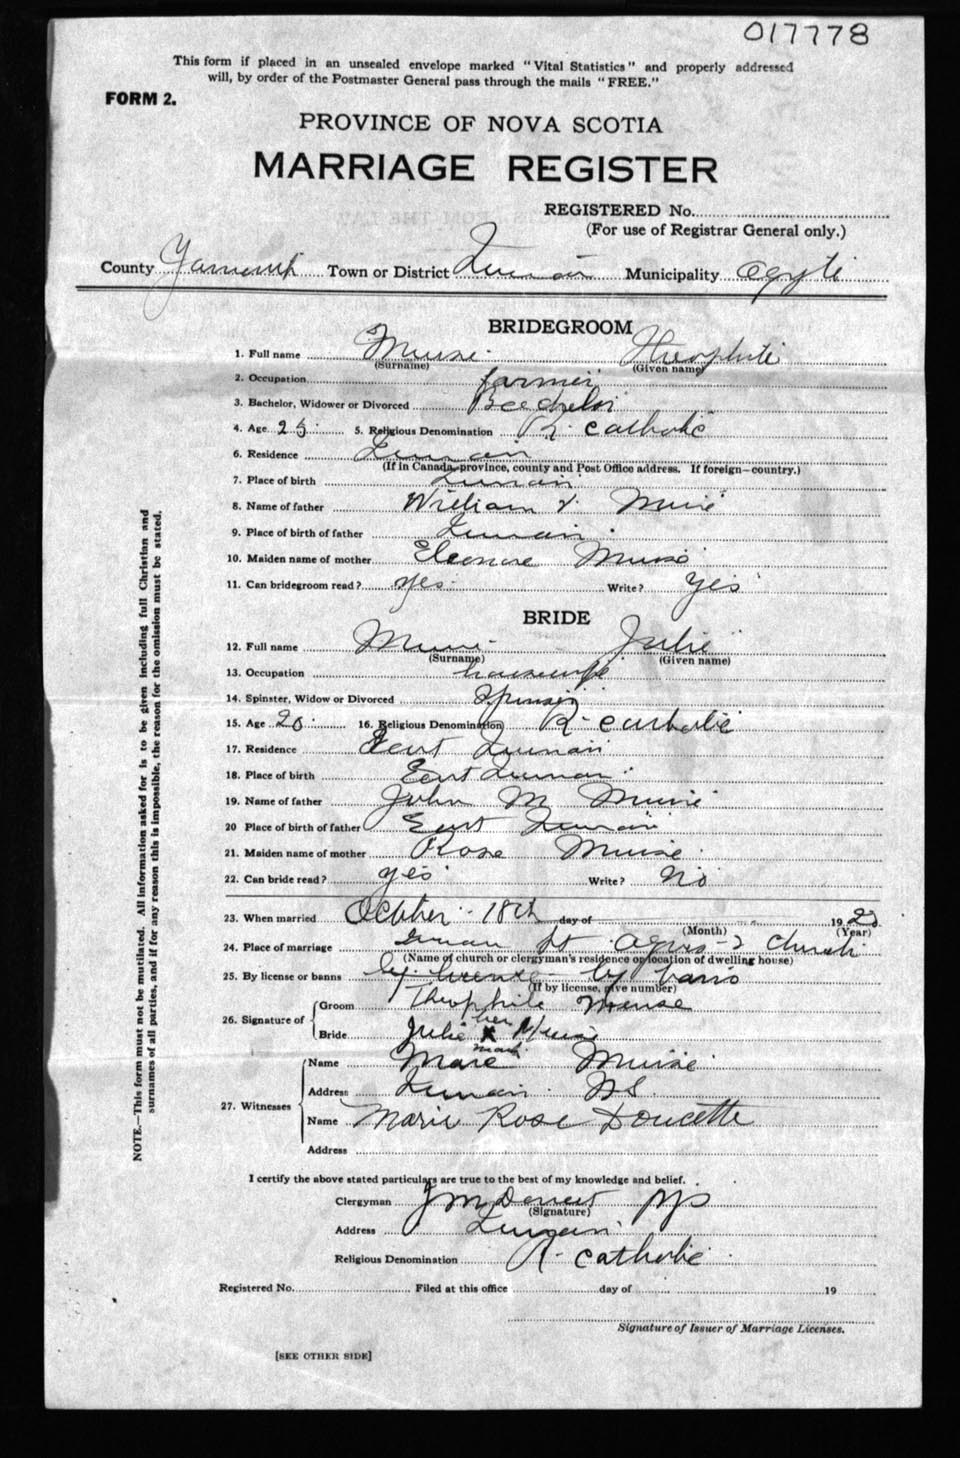 017778
This form if placed in an unsealed envelope marked "Vital Statistics" and properly addressed
will, by order of the Postmaster General pass through the mails "FREE."
FORM 2.
PROVINCE OF NOVA SCOTIA
MARRIAGE REGISTER
REGISTERED No.
(For use of Registrar General only.)
County Yarmouth Town or District Quinan Municipality Argyle
BRIDEGROOM
1. Full name Muise Theophile
(Surname) (Given name)
2. Occupation farmer
3. Bachelor, Widower or Divorced Bachelor
4. Age 25 5. Religious Denomination R. Catholic
6. Residence Quinan
(If in Canada, province, county and Post Office address. If foreign—country.)
7. Place of birth Quinan
8. Name of father William Muise
9. Place of birth of father Quinan
10. Maiden name of mother Eleonore Muise
11. Can bridegroom read? yes Write? yes
BRIDE
12. Full name Muise Julie
(Surname) (Given name)
13. Occupation housewife
14. Spinster, Widow or Divorced Spinster
15. Age 20 16. Religious Denomination R. Catholic
17. Residence East Quinan
18. Place of birth East Quinan
19. Name of father John M Muise
20 Place of birth of father East Quinan
21. Maiden name of mother Rose Muise
22. Can bride read? yes Write? No
23. When married October 18th day of 19
(Month) (Year)
24. Place of marriage Quinan St Agnes Church
(Name of church or clergyman's residence or location of dwelling house)
25. By license or banns by license by bans
(If by license, give number)
26. Signature of Groom Theophile Meuse
her
Bride Julie X Muise
mark
27. Witnesses Name Marc Muise
Address Quinan N S.
Name Marie Rose Doucette
Address
I certify the above stated particulars are true to the best of my knowledge and belief.
Clergyman J M
(Signature)
Address Quinan
Religious Denomination R. Catholic
Registered No. Filed at this office day of 19
Signature of Issuer of Marriage Licenses.
[SEE OTHER SIDE]
NOTE.—This form must not be mutilated. All information asked for is to be given including full Christian and
surnames of all parties, and if for any reason this is impossible, the reason for the omission must be stated.